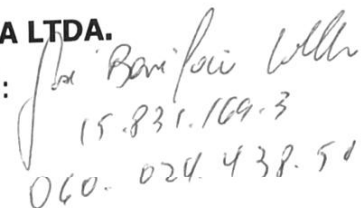 A LTDA.
: José Bonifácio
15.831.169-3
060.024.438.50